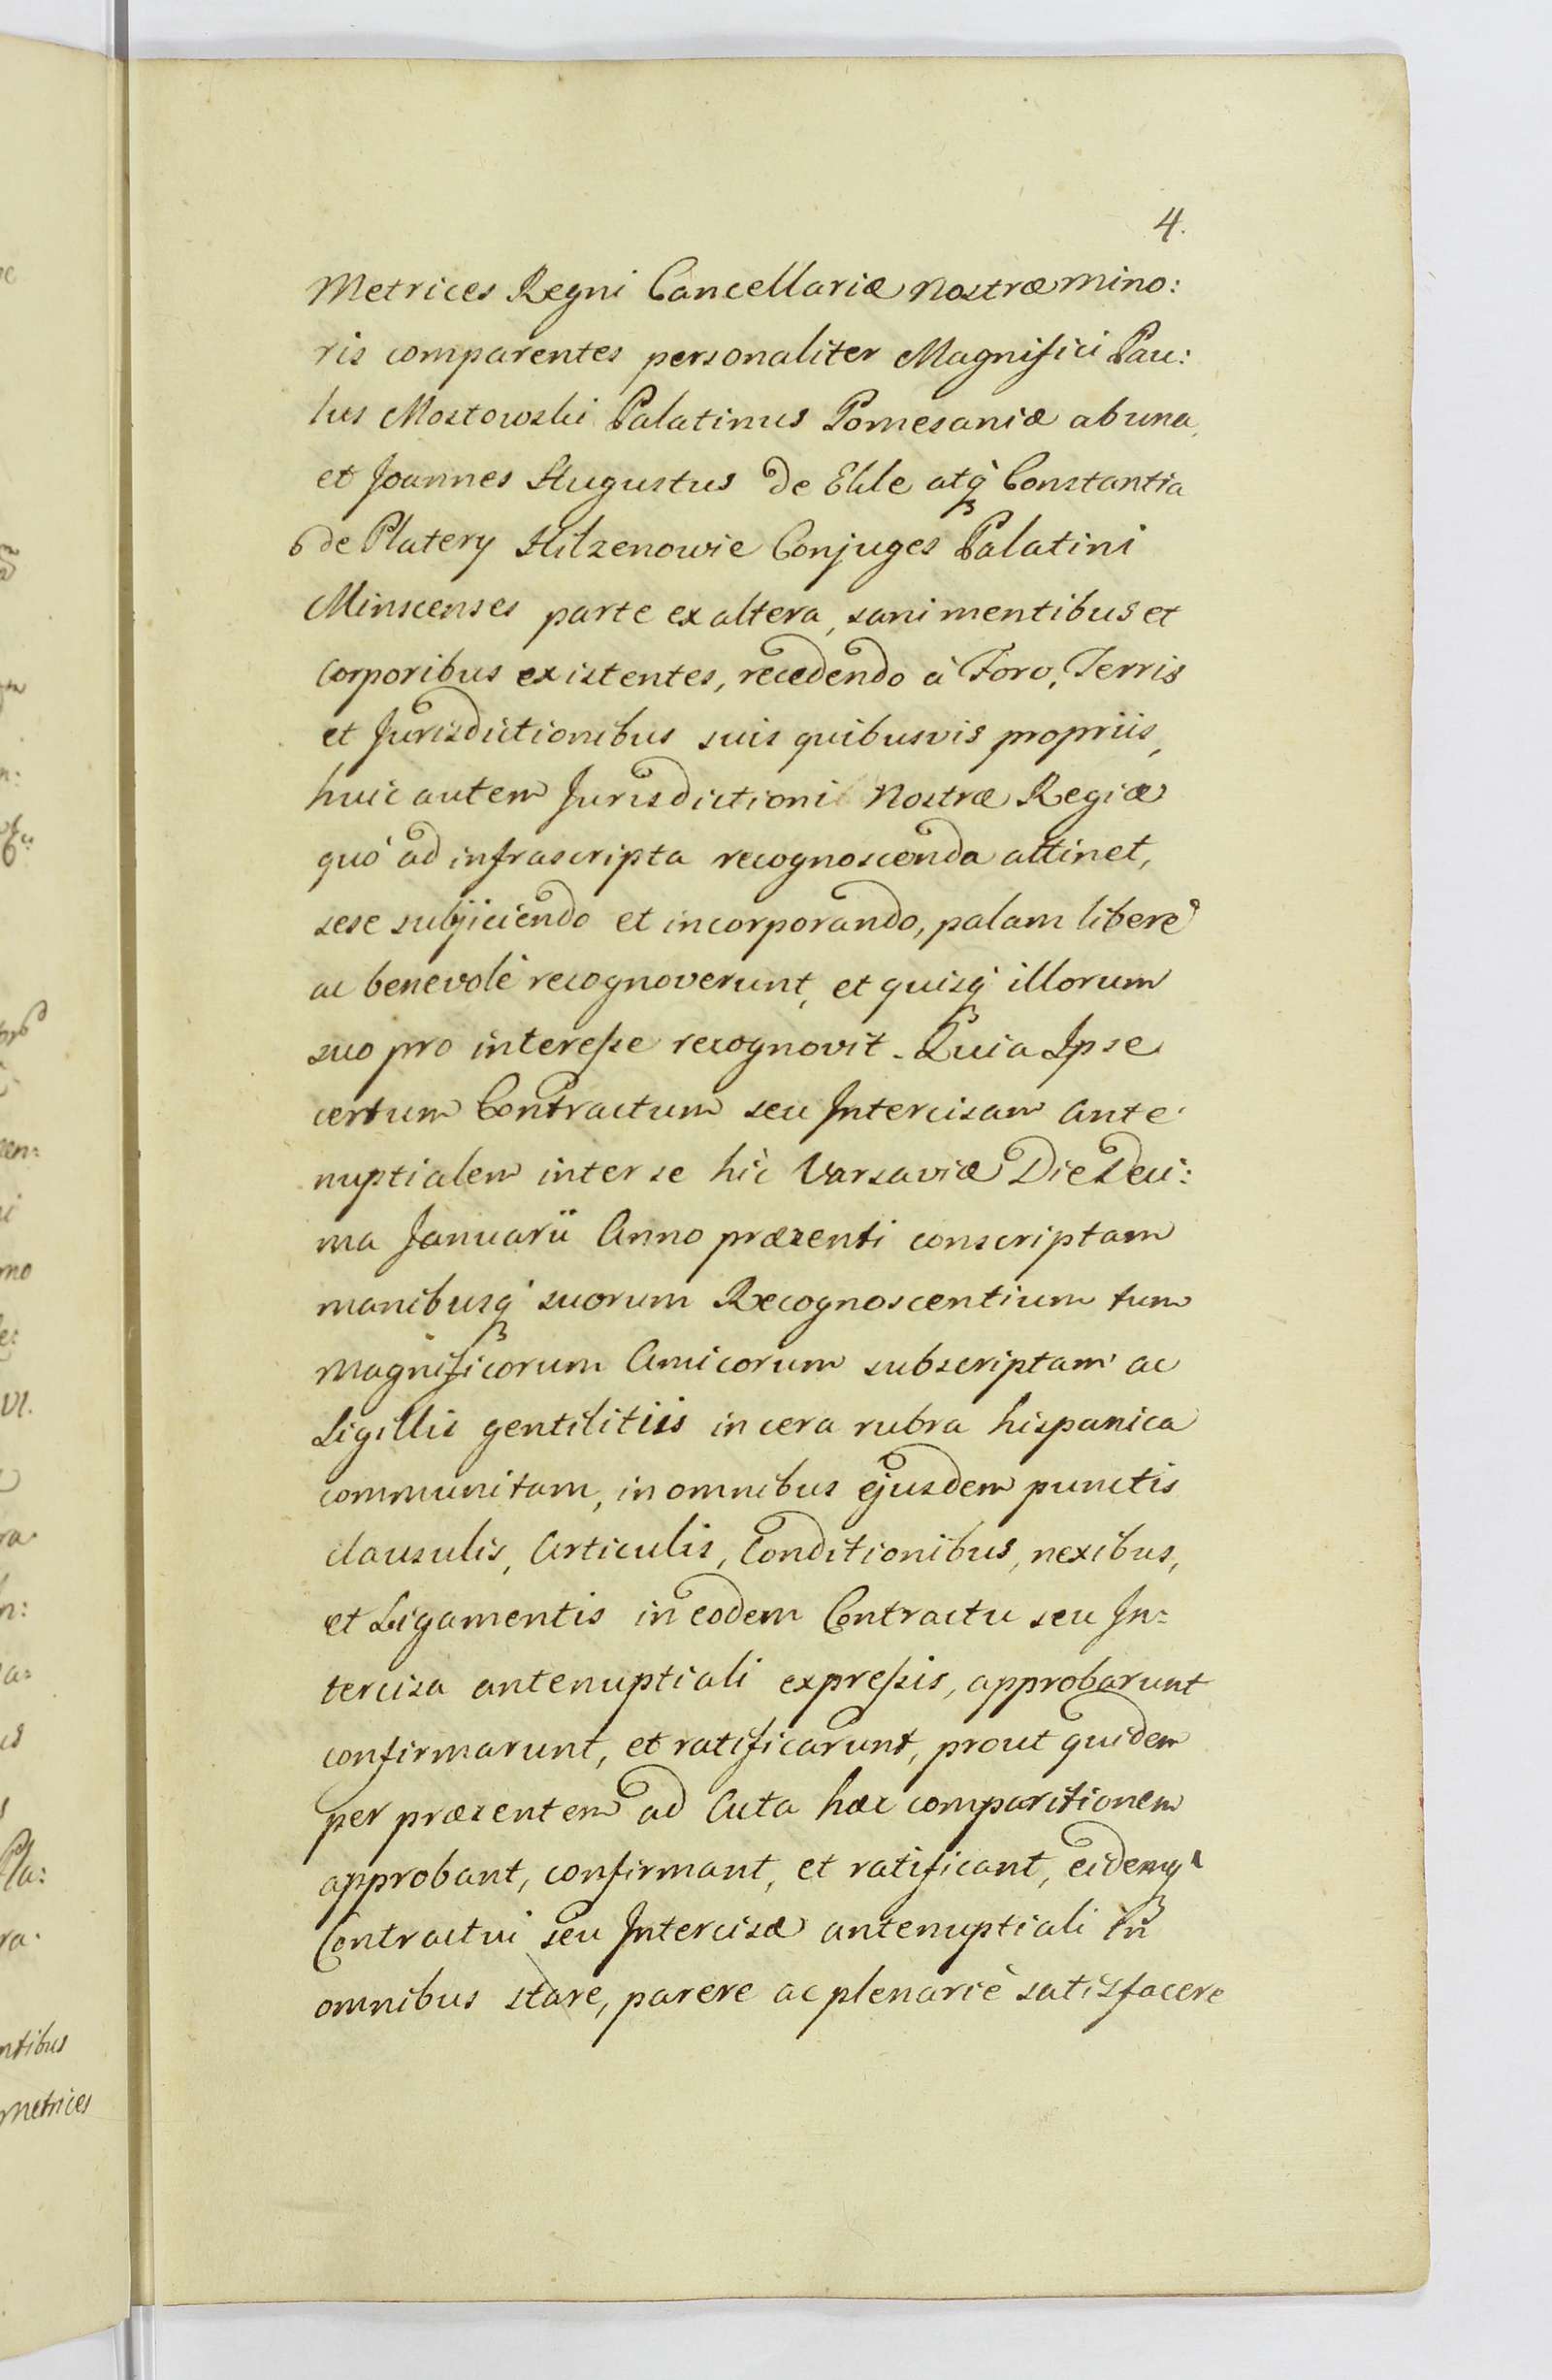 4.
Metrices Regni Cancellariæ Nostræ Mino:
ris comparentes personaliter Magnifici Pau:
lus Mostowski Palatinus Pomesaniæ ab una,
et Joannes Augustus de Ekle atq̀ Constantia
de Platery Hilzenowie Conjuges Palatini
Minscenses parte ex altera, sani mentibus et
Corporibus existentes, recedendo à Foro, Terris
et Jurisdictionibus suis quibusvis propriis,
huic autem Jurisdictioni Nostræ Regiæ
quó ad infrascripta recognoscenda attinet,
sese subjiciendo et incorporando, palam liberè
ac benevolè recognoverunt, et quisq̀ illorum
suo pro interesse recognovit. Quia Ipse
certum Contractum seu Intercisam ante
nuptialem inter se hìc Varsaviæ Die Deci:
ma Januarii Anno præsenti conscriptam
manibusq̀ suorum Recognoscentium tum
Magnificorum Amicorum subscriptam ac
Sigillis gentilitiis in cera rubra hispanica
communitam, in omnibus ejusdem punctis
clausulis, Articulis, Conditionibus, nexibus,
et Ligamentis in eodem Contractu seu In:
tercisa antenuptiali expressis, approbarunt
confirmarunt, et ratificarunt, prout quidem
per præsentem ad Acta hæc comparitionem
approbant, confirmant, et ratificant, eidemq̀
Contractui seu Intercisæ antenuptiali in
omnibus stare, parere ac plenariè satisfacere
ntibus
metrices